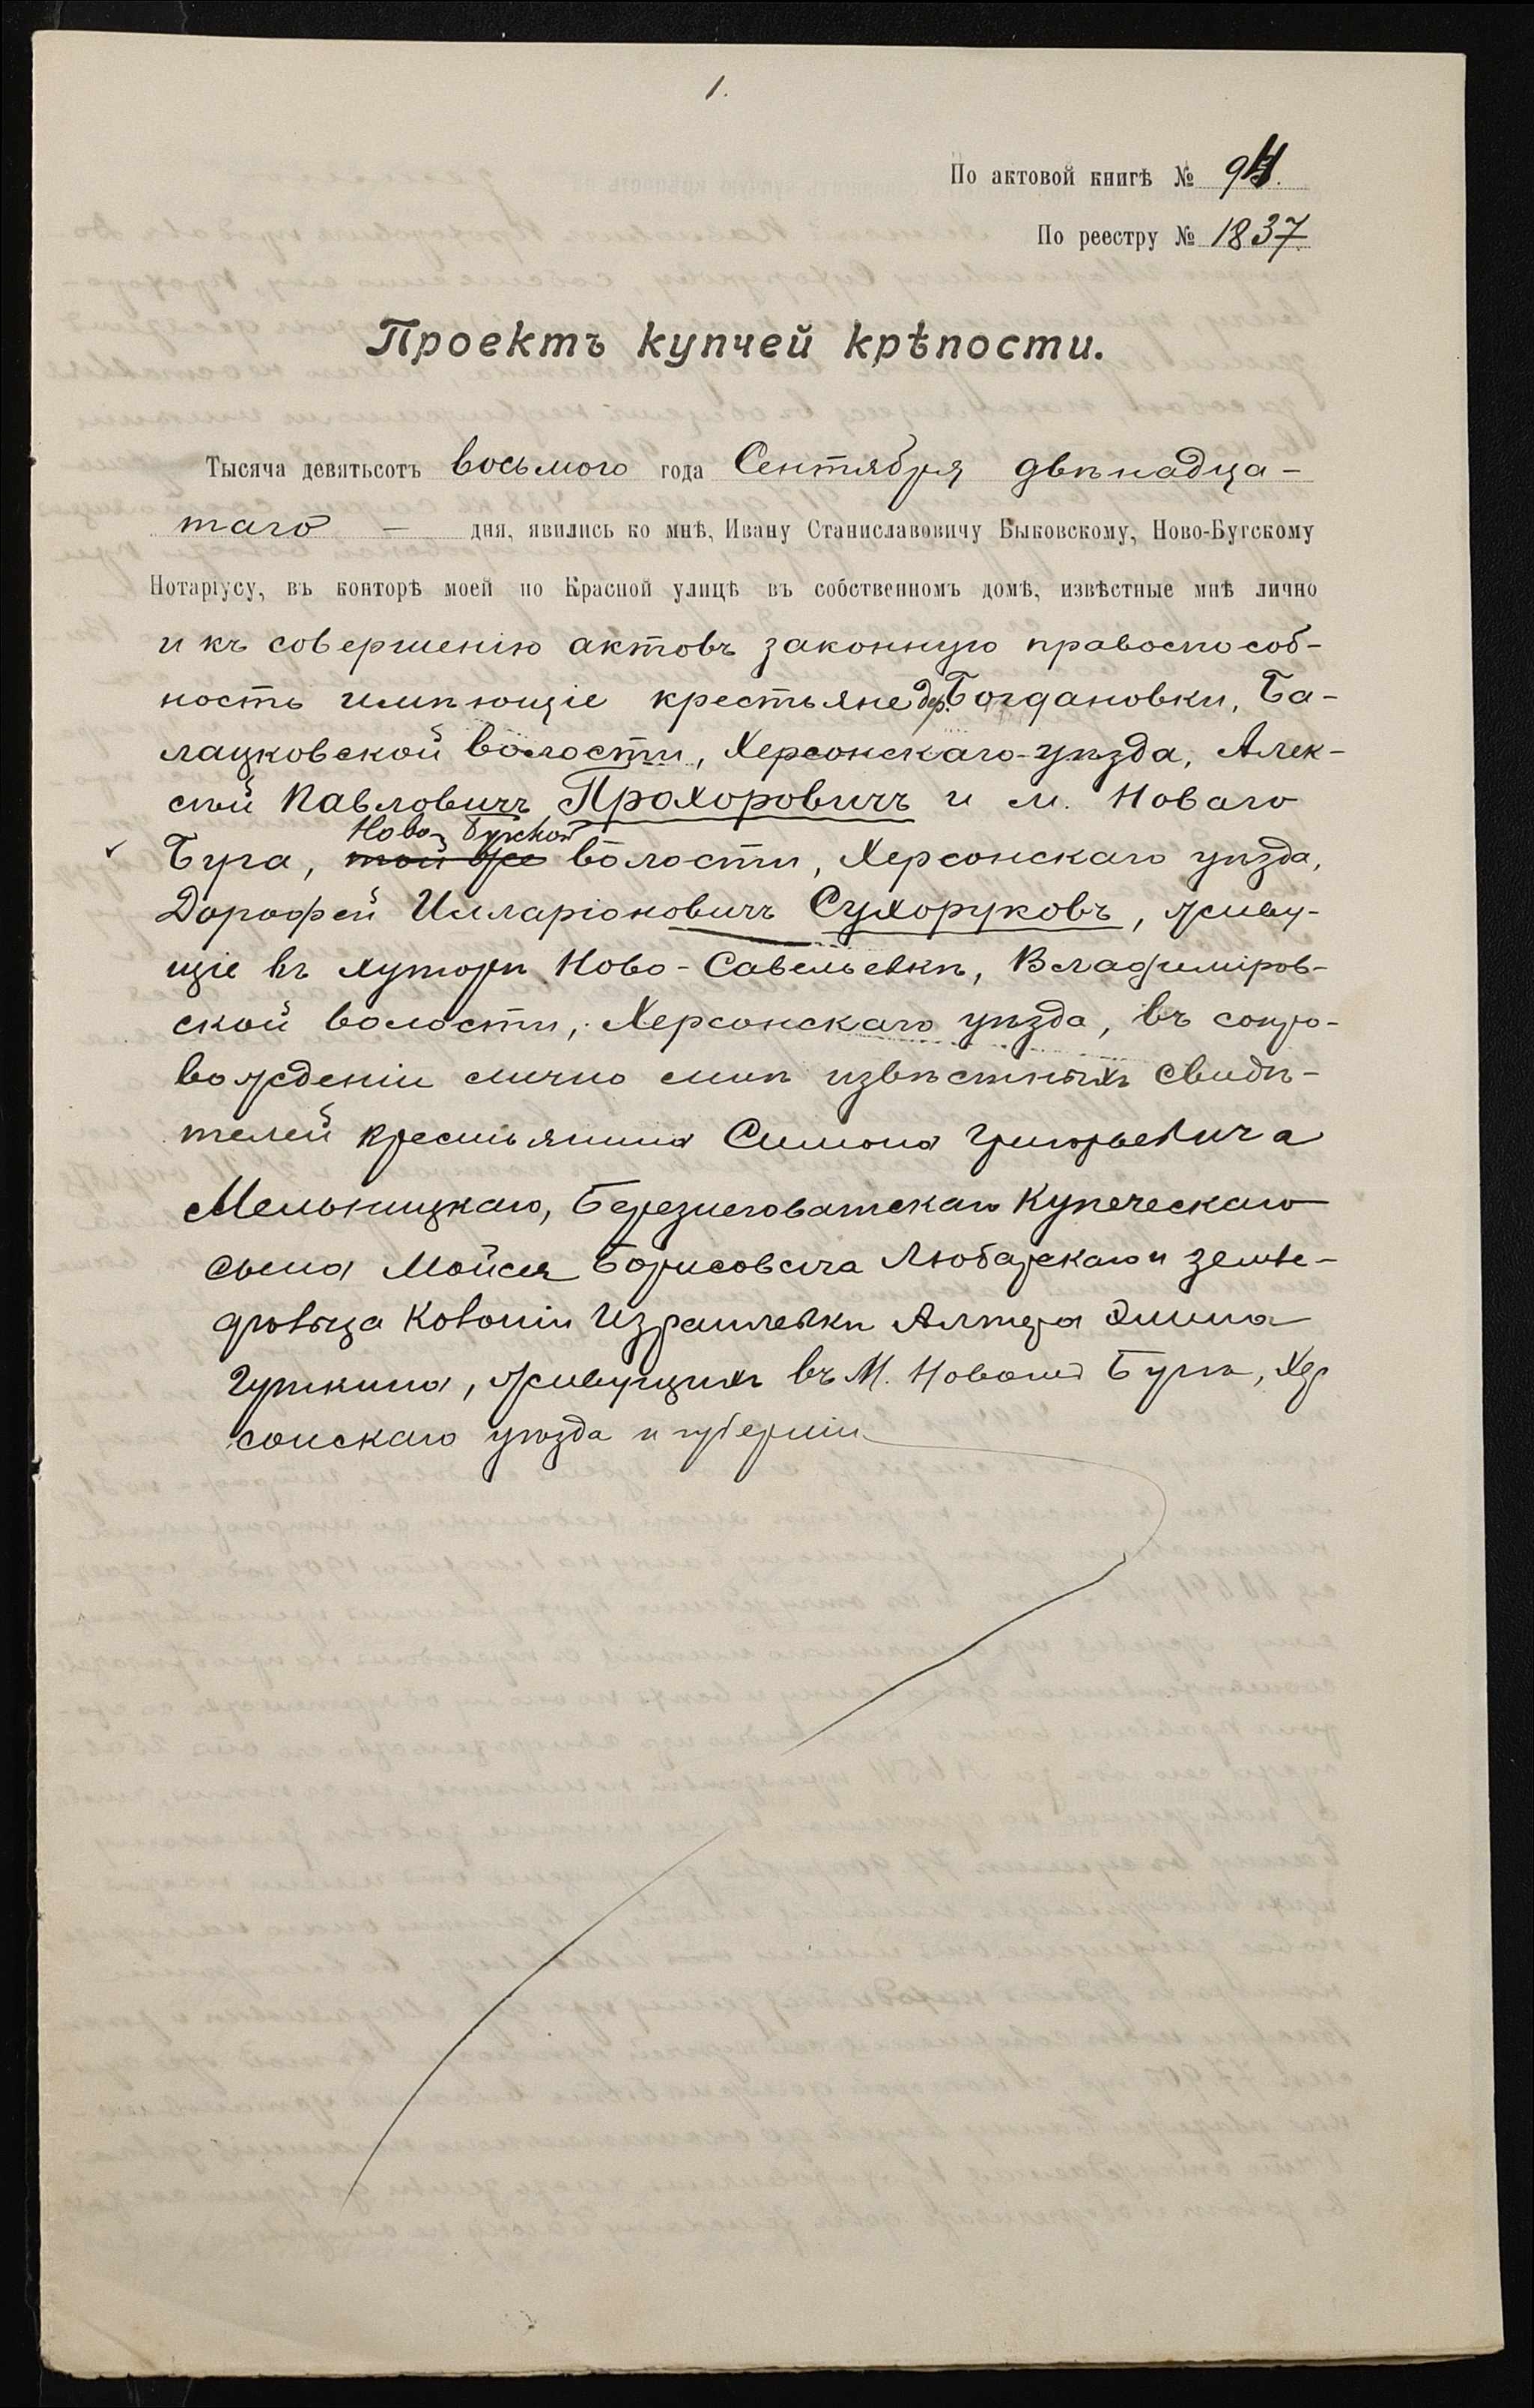 1.
По актовой книгѣ № 94.
По реестру № 1837.
Проектъ купчей крѣпости.
Тысяча девятьсотъ восьмого года Сентября двѣнадца-
таго — дня, явились ко мнѣ, Ивану Станиславовичу Быковскому, Ново-Бугскому
Нотаріусу, въ конторѣ моей по Красной улицѣ въ собственномъ домѣ, извѣстные мнѣ лично
и къ совершенію актовъ законную правоспособ-
ность имѣющіе крестьяне дер. Богдановки, Ба-
лацковской волости, Херсонскаго уѣзда, Алек-
сѣй Павловичъ Прохоровичъ и м. Новаго
Ново-Бугской
Буга, той же волости, Херсонскаго уѣзда,
Дорофей Илларіоновичъ Сухоруковъ, живу-
щіе въ хуторѣ Ново-Савельевкѣ, Владиміров-
ской волости, Херсонскаго уѣзда, въ сопро-
вожденіи лично мнѣ извѣстныхъ свидѣ-
телей крестьянина Симона Григорьевича
Мельницкаго, Березнеговатскаго Купеческаго
сына Мойсея Борисовича Любарскаго и земле-
дѣльца Колоніи Израилевки Алтера
живущихъ въ М. Новомъ Бугѣ, Хер
сонскаго уѣзда и губерніи